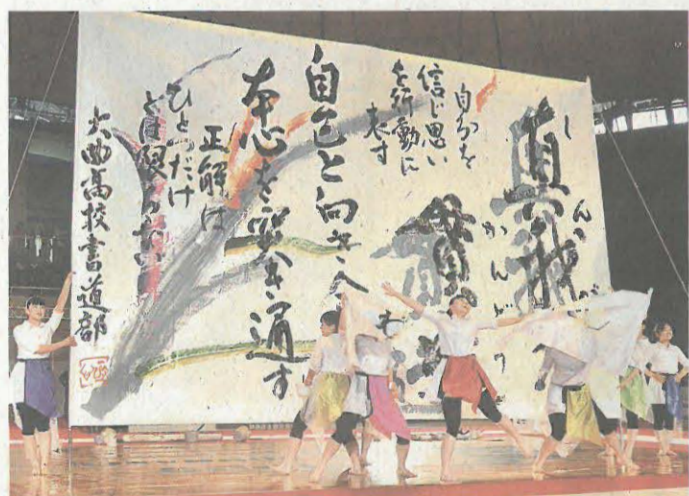 真我
しんが
かんど
自分を
信じ思い
を行動に
表す
自己と向き
本心を貫き通す
正解は
ひとつだけ
とは限らない
大曲高校書道部